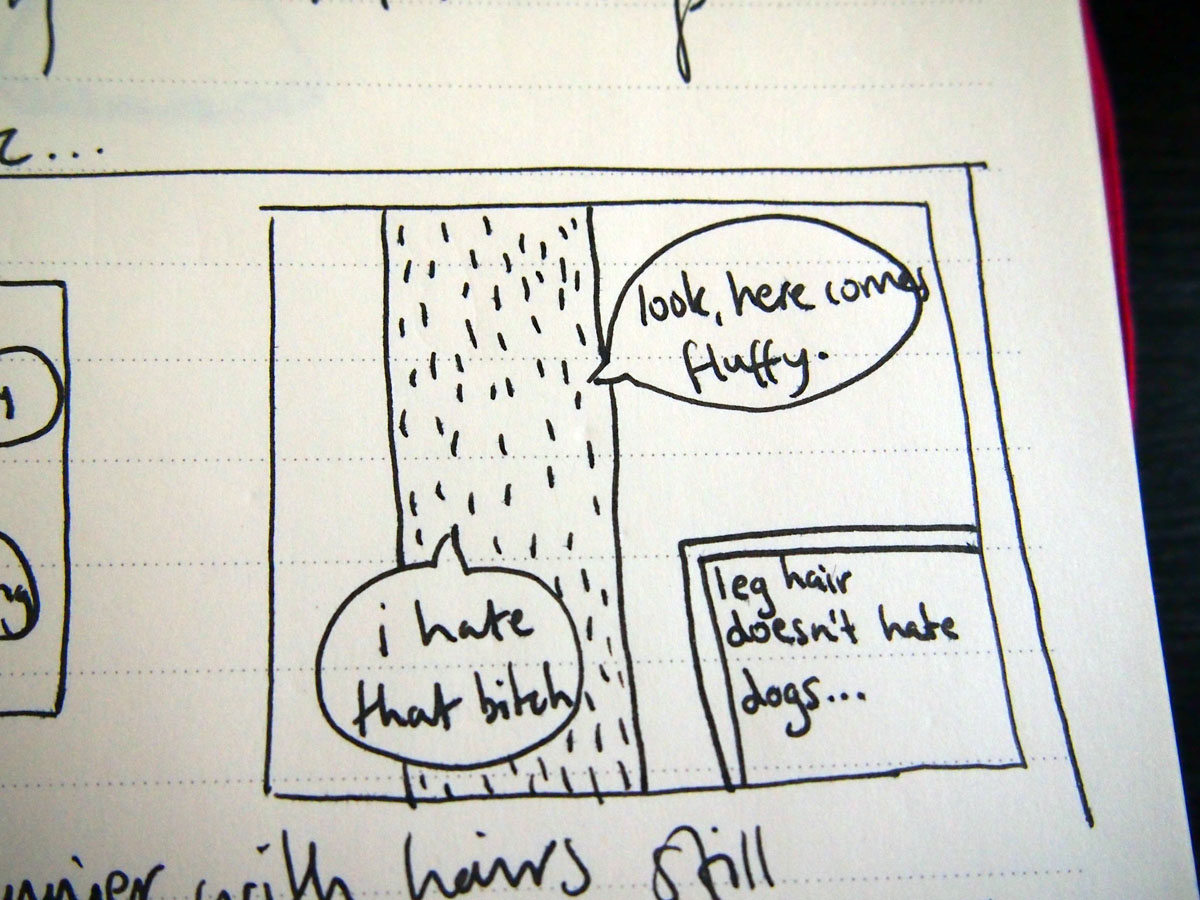 look, here comes
fluffy.
i hate
that bitch
leg hair
doesn't hate
dogs...
with hairs still